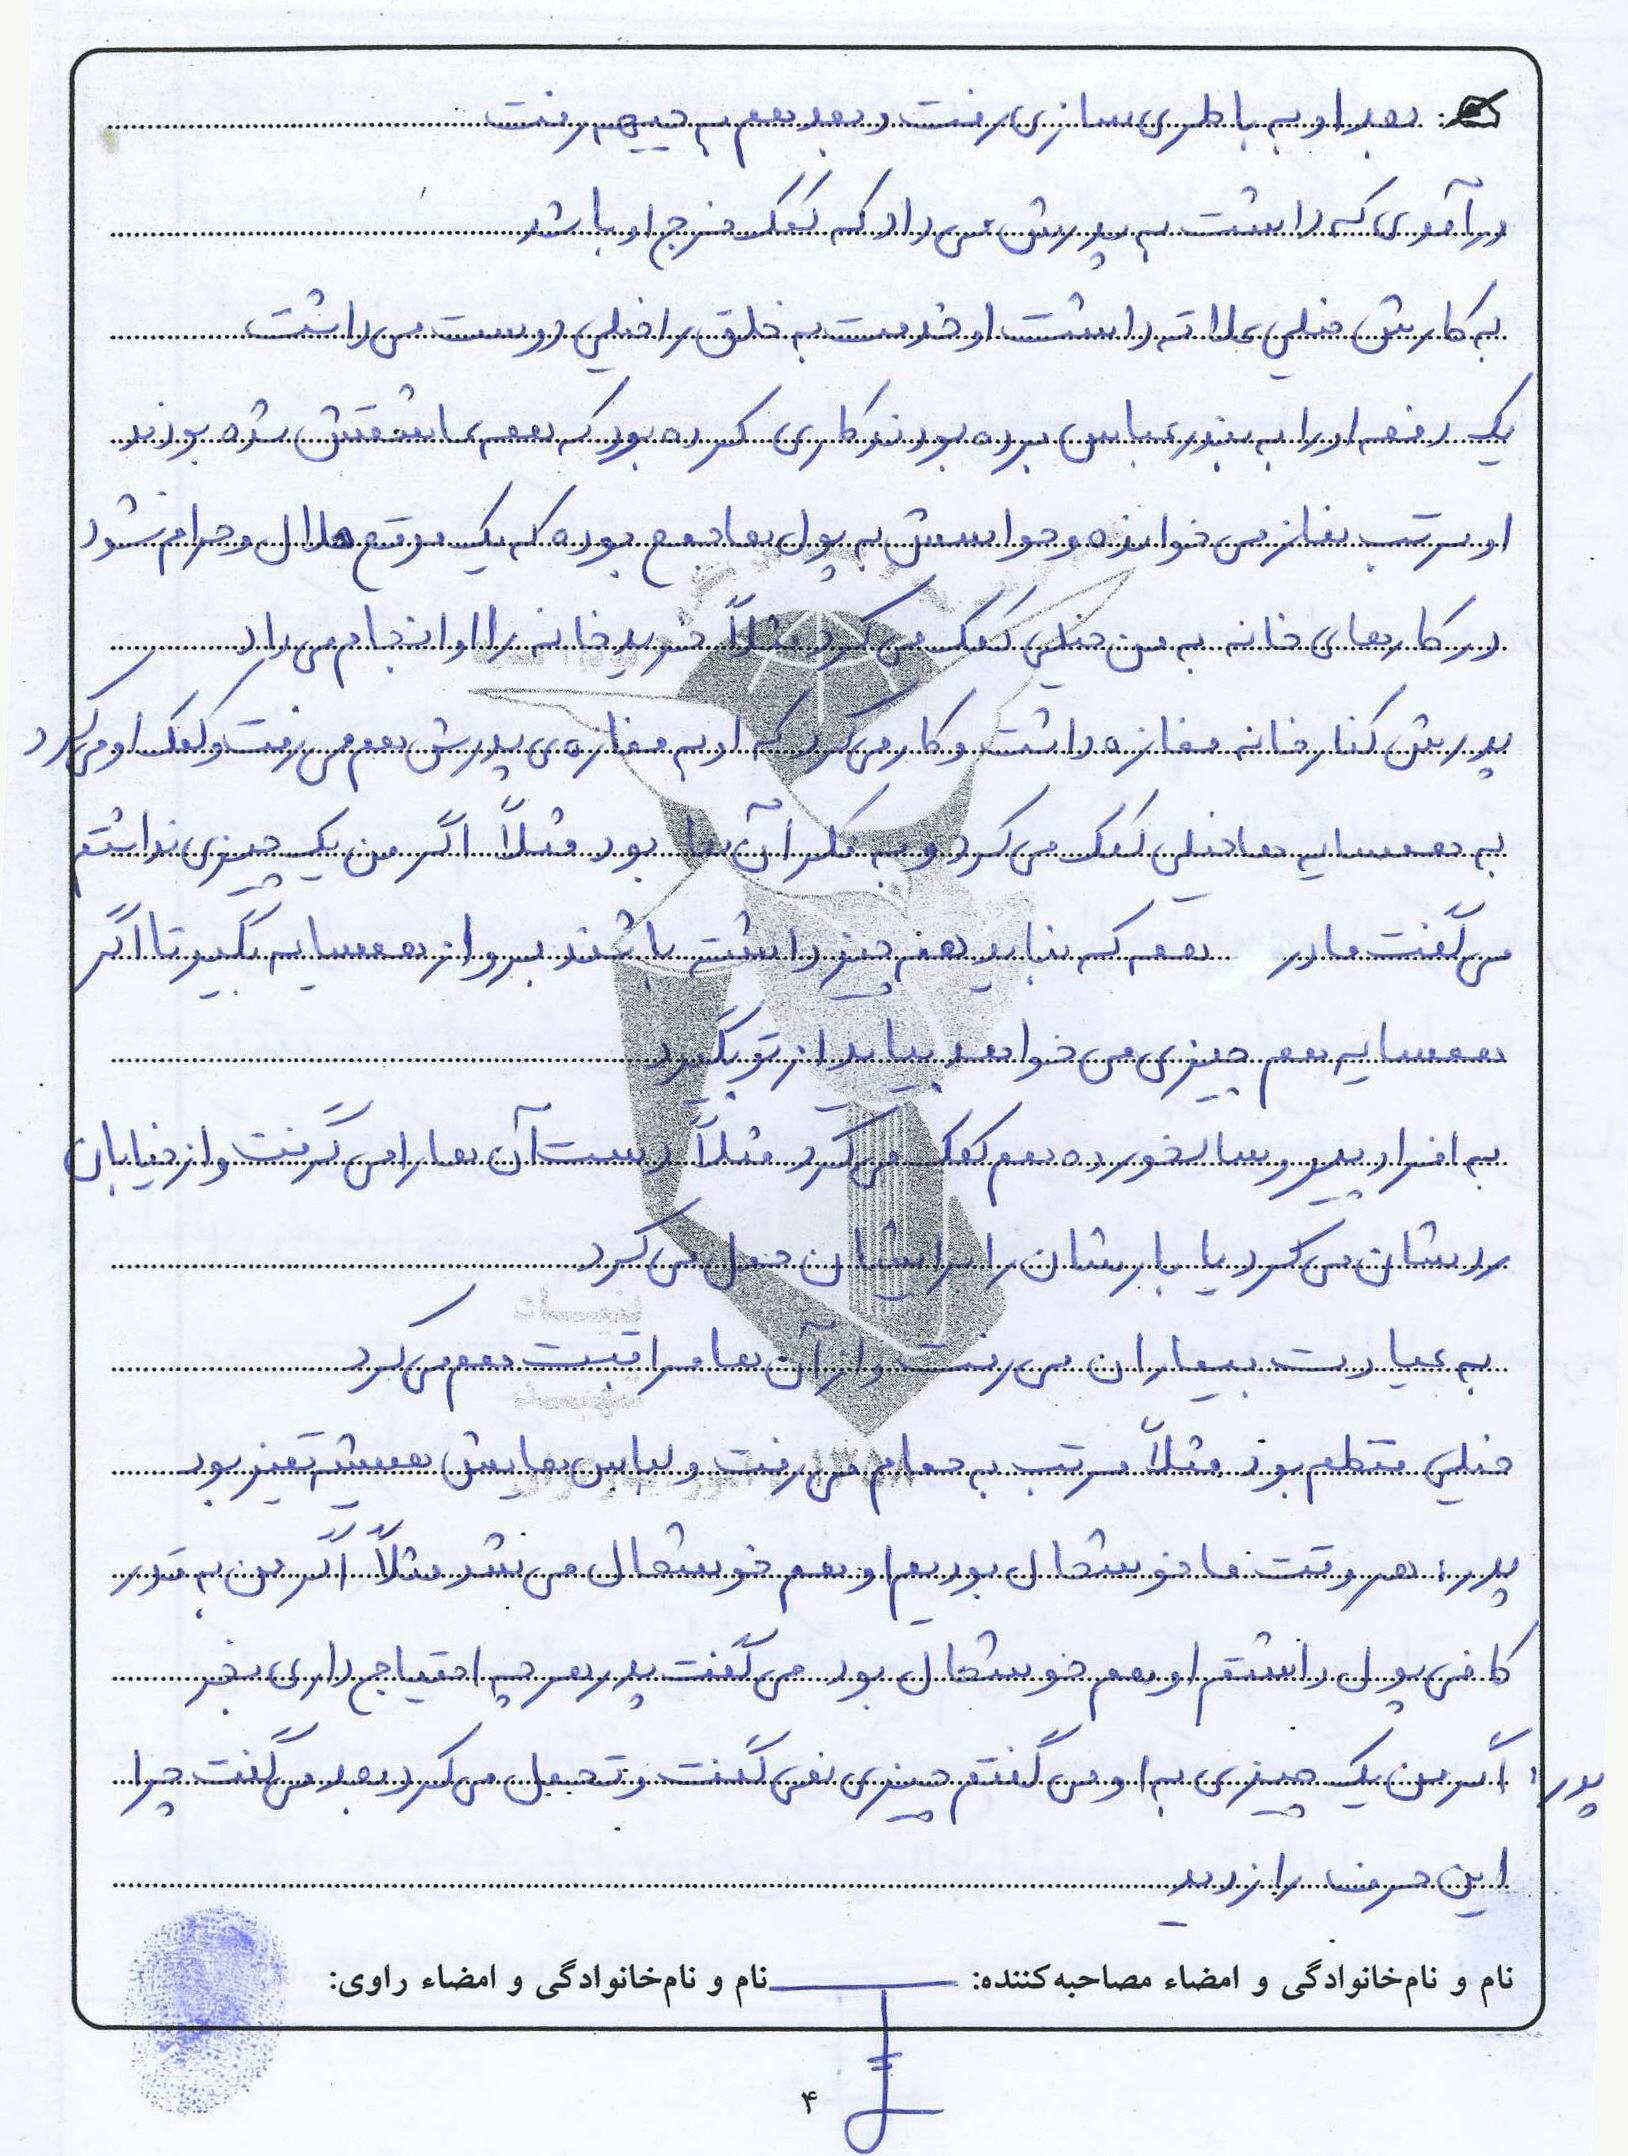 : بعد او به باطری سازی رفت و بعد هم به جبهه رفت
درآمدی که داشت به پدرش می داد که کمک خرج او باشد
به کارش خیلی علاقه داشت او خدمت به خلق را خیلی دوست می داشت
یک دفعه او را به بندرعباس برده بودند کاری کرده بود که همه عاشقش شده بودند
او مرتب نماز می خوانده و حواسش به پول ها جمع بوده که یک موقع حلال و حرام نشود
در کارهای خانه به من خیلی کمک می کرد مثلاً خرید خانه را او انجام می داد
پدرش کنار خانه مغازه داشت و کار می کرد که او به مغازه ی پدرش هم می رفت و کمک او می کرد
به همسایه ها خیلی کمک می کرد و به فکر آن ها بود مثلاً اگر من یک چیزی نداشتم
می گفت مادر همه که نباید همه چیز داشته باشند برو از همسایه بگیر تا اگر
همسایه هم چیزی می خواهد بیاید از تو بگیرد
به افراد پیر و سالخورده هم کمک می کرد مثلاً دست آن ها را می گرفت و از خیابان
ردشان می کرد یا بارشان را برایشان حمل می کرد
به عیادت بیماران می رفت و از آن ها مراقبت هم می کرد
خیلی منظم بود مثلاً مرتب به حمام می رفت و لباس هایش همیشه تمیز بود
پدر: هر وقت ما خوشحال بودیم او هم خوشحال می شد مثلاً اگر من به قدر
کافی پول داشتم او هم خوشحال بود می گفت پدر هر چه احتیاج داری بخر
پدر: اگر من یک چیزی به او می گفتم چیزی نمی گفت و تحمل می کرد بعد می گفت چرا
این حرف را زدید
نام و نام‌خانوادگی و امضاء مصاحبه‌کننده: نام و نام‌خانوادگی و امضاء راوی:
۴